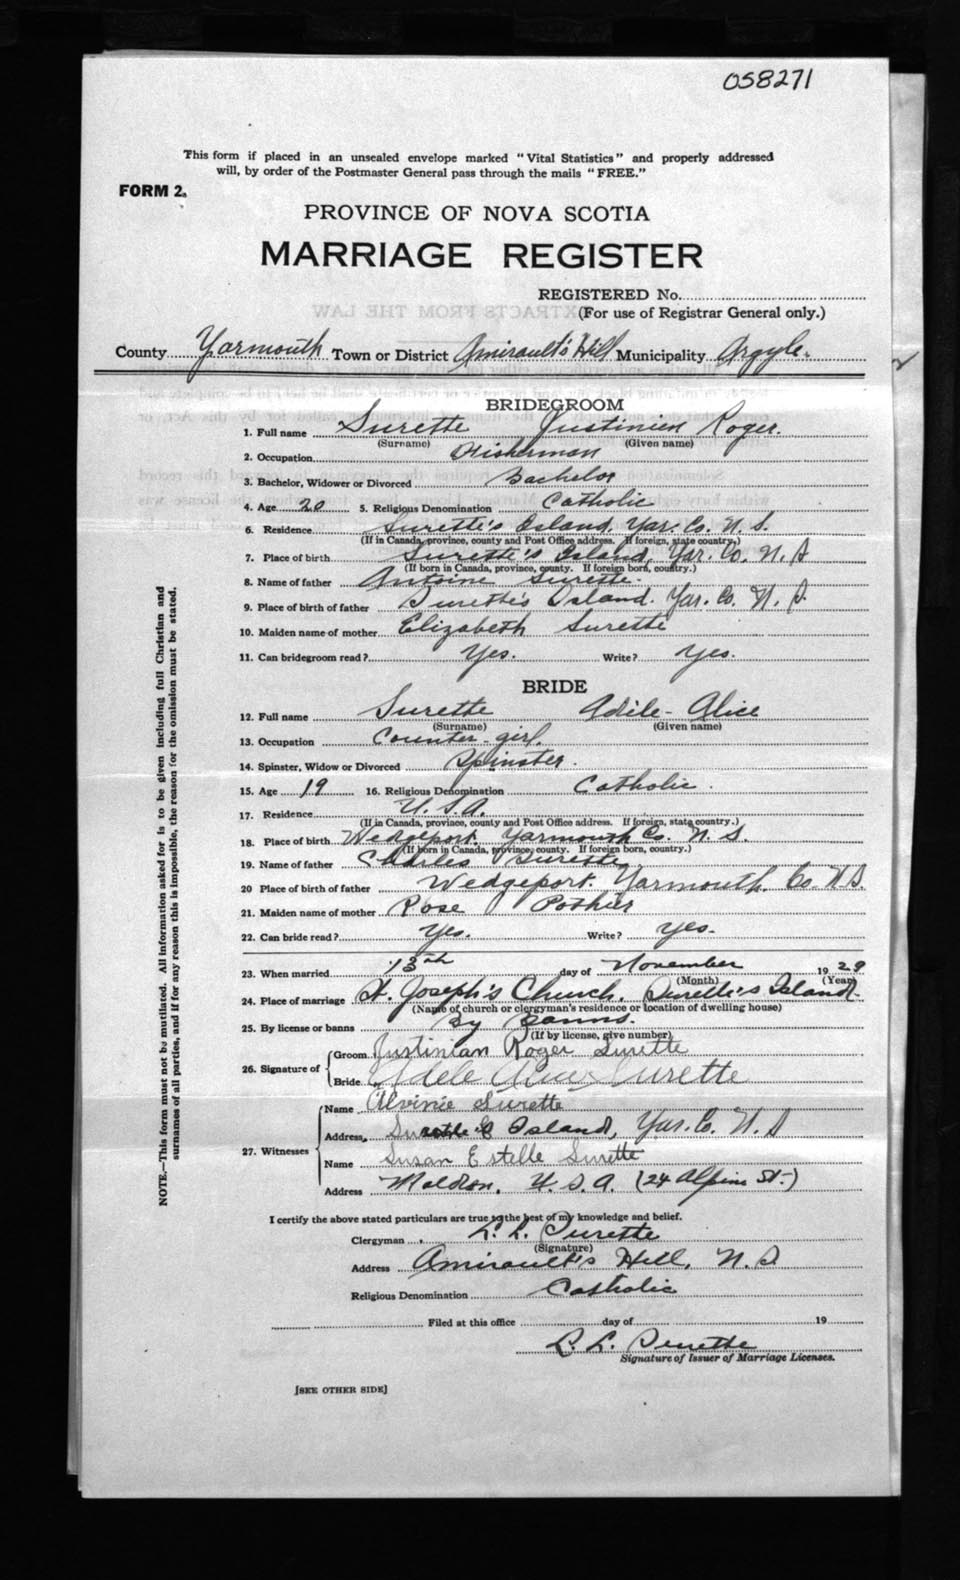 058271
This form if placed in an unsealed envelope marked "Vital Statistics" and properly addressed
will, by order of the Postmaster General pass through the mails "FREE."
FORM 2.
PROVINCE OF NOVA SCOTIA
MARRIAGE REGISTER
REGISTERED No.
(For use of Registrar General only.)
County Yarmouth Town or District Amirault's Hill Municipality Argyle.
BRIDEGROOM
1. Full name Surette Justinien Roger.
(Surname) (Given name)
2. Occupation Fisherman
3. Bachelor, Widower or Divorced Bachelor
4. Age 20 5. Religious Denomination Catholic
6. Residence Surette's Island, Yar. Co. N. S.
(If in Canada, province, county and Post Office address. If foreign, state country.)
7. Place of birth Surette's Island, Yar. Co. N. S
(If born in Canada, province, county. If foreign born, country.)
8. Name of father Antoine Surette.
9. Place of birth of father Surette's Island. Yar. Co. N. S.
10. Maiden name of mother Elizabeth Surette
11. Can bridegroom read? Yes. Write? Yes.
BRIDE
12. Full name Surette Adèle - Alice
(Surname) (Given name)
13. Occupation Counter-girl.
14. Spinster, Widow or Divorced Spinster.
15. Age 19 16. Religious Denomination Catholic.
17. Residence U. S. A.
(If in Canada, province, county and Post Office address. If foreign, state country.)
18. Place of birth Wedgeport. Yarmouth Co. N. S.
(If born in Canada, province, county. If foreign born, country.)
19. Name of father Charles Surette
20 Place of birth of father Wedgeport. Yarmouth Co. N.S.
21. Maiden name of mother Rose Pothier
22. Can bride read? Yes. Write? Yes.
23. When married 13th day of November 1929
(Month) (Year)
24. Place of marriage St. Joseph's Church. Surette's Island.
(Name of church or clergyman's residence or location of dwelling house)
25. By license or banns By Banns.
(If by license, give number)
26. Signature of Groom Justinian Roger Surette
Bride Adele Alice Surette
27. Witnesses Name Alvinie Surette
Address Surette's Island, Yar. Co. N. S
Name Susan Estelle Surette
Address Maldon, U. S. A. (24 Alpine St.)
I certify the above stated particulars are true to the best of my knowledge and belief.
Clergyman L. L. Surette
(Signature)
Address Amirault's Hill, N. S
Religious Denomination Catholic
Filed at this office day of 19
L. L. Surette
Signature of Issuer of Marriage Licenses.
[SEE OTHER SIDE]
NOTE.—This form must not be mutilated. All information asked for is to be given including full Christian and
surnames of all parties, and if for any reason this is impossible, the reason for the omission must be stated.